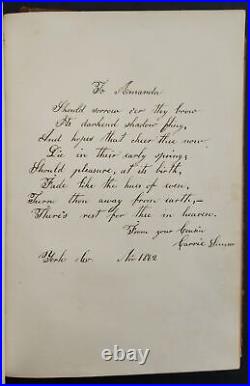 To Amanda
Should sorrow o'er thy brow
Its darkend shadow fling,
And hopes that cheer thee now
Die in their early spring;
Should pleasure, at its birth,
Fade like the hues of even,
Turn thou away from earth,—
There's rest for thee in heaven.
From your Cousin
Carrie
York 1862